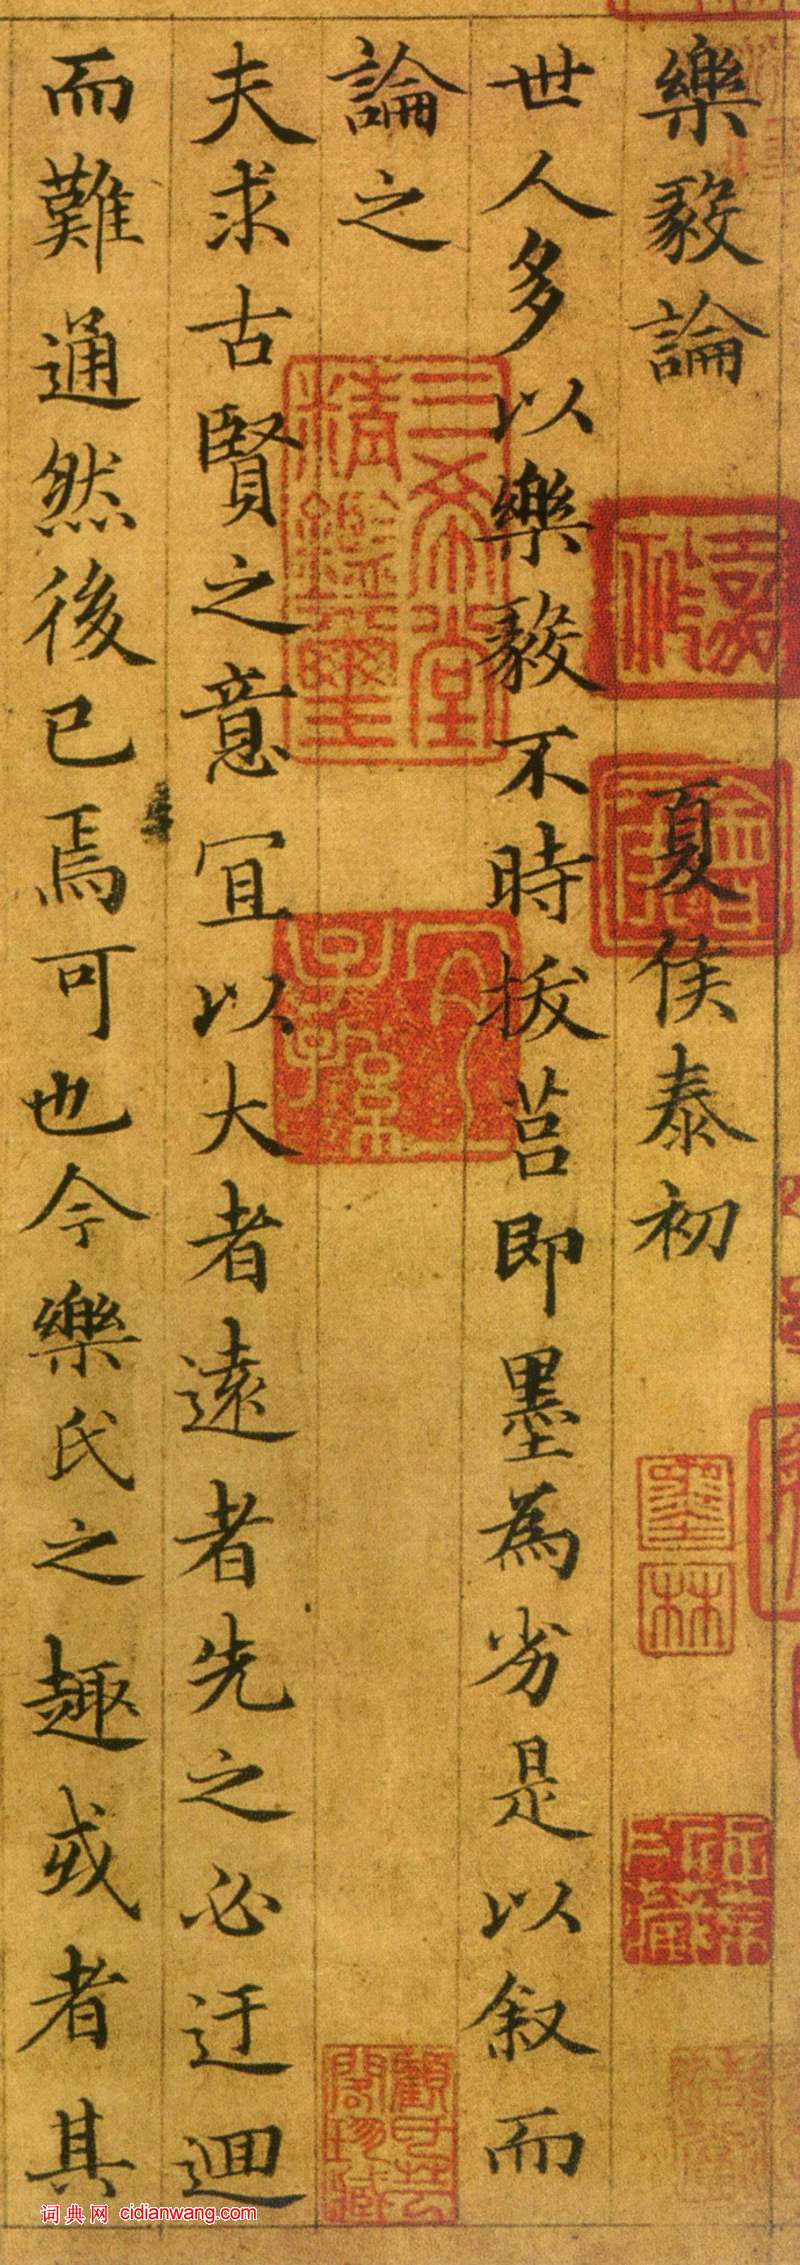 樂毅論 夏侯泰初
世人多以樂毅不時拔莒即墨為劣是以叙而
論之
夫求古賢之意宜以大者遠者先之必迂迴
而難通然後已焉可也今樂氏之趣或者其
三希堂精鑑璽
宜子孫
墨林
詞典网 cidianwang.com